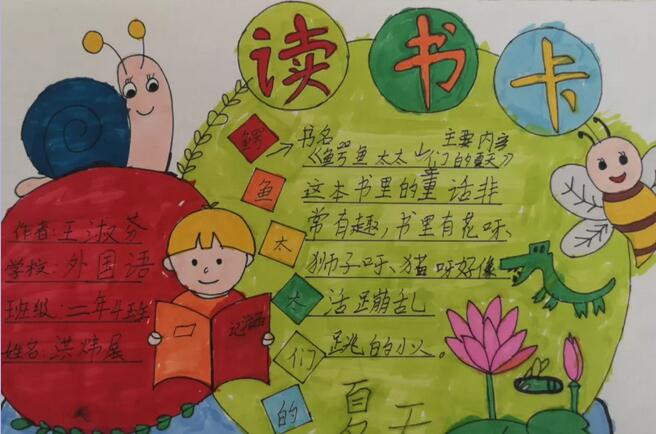 读书卡
书名 主要内容
《鳄鱼太太们的夏天》
这本书里的童话非
常有趣,书里有花呀、
狮子呀、猫呀好像
活蹦乱
跳的小人。
作者:王淑芬
学校:外国语
班级:二年4班
姓名:洪炜展
鳄
鱼
太
太
们
的
夏天